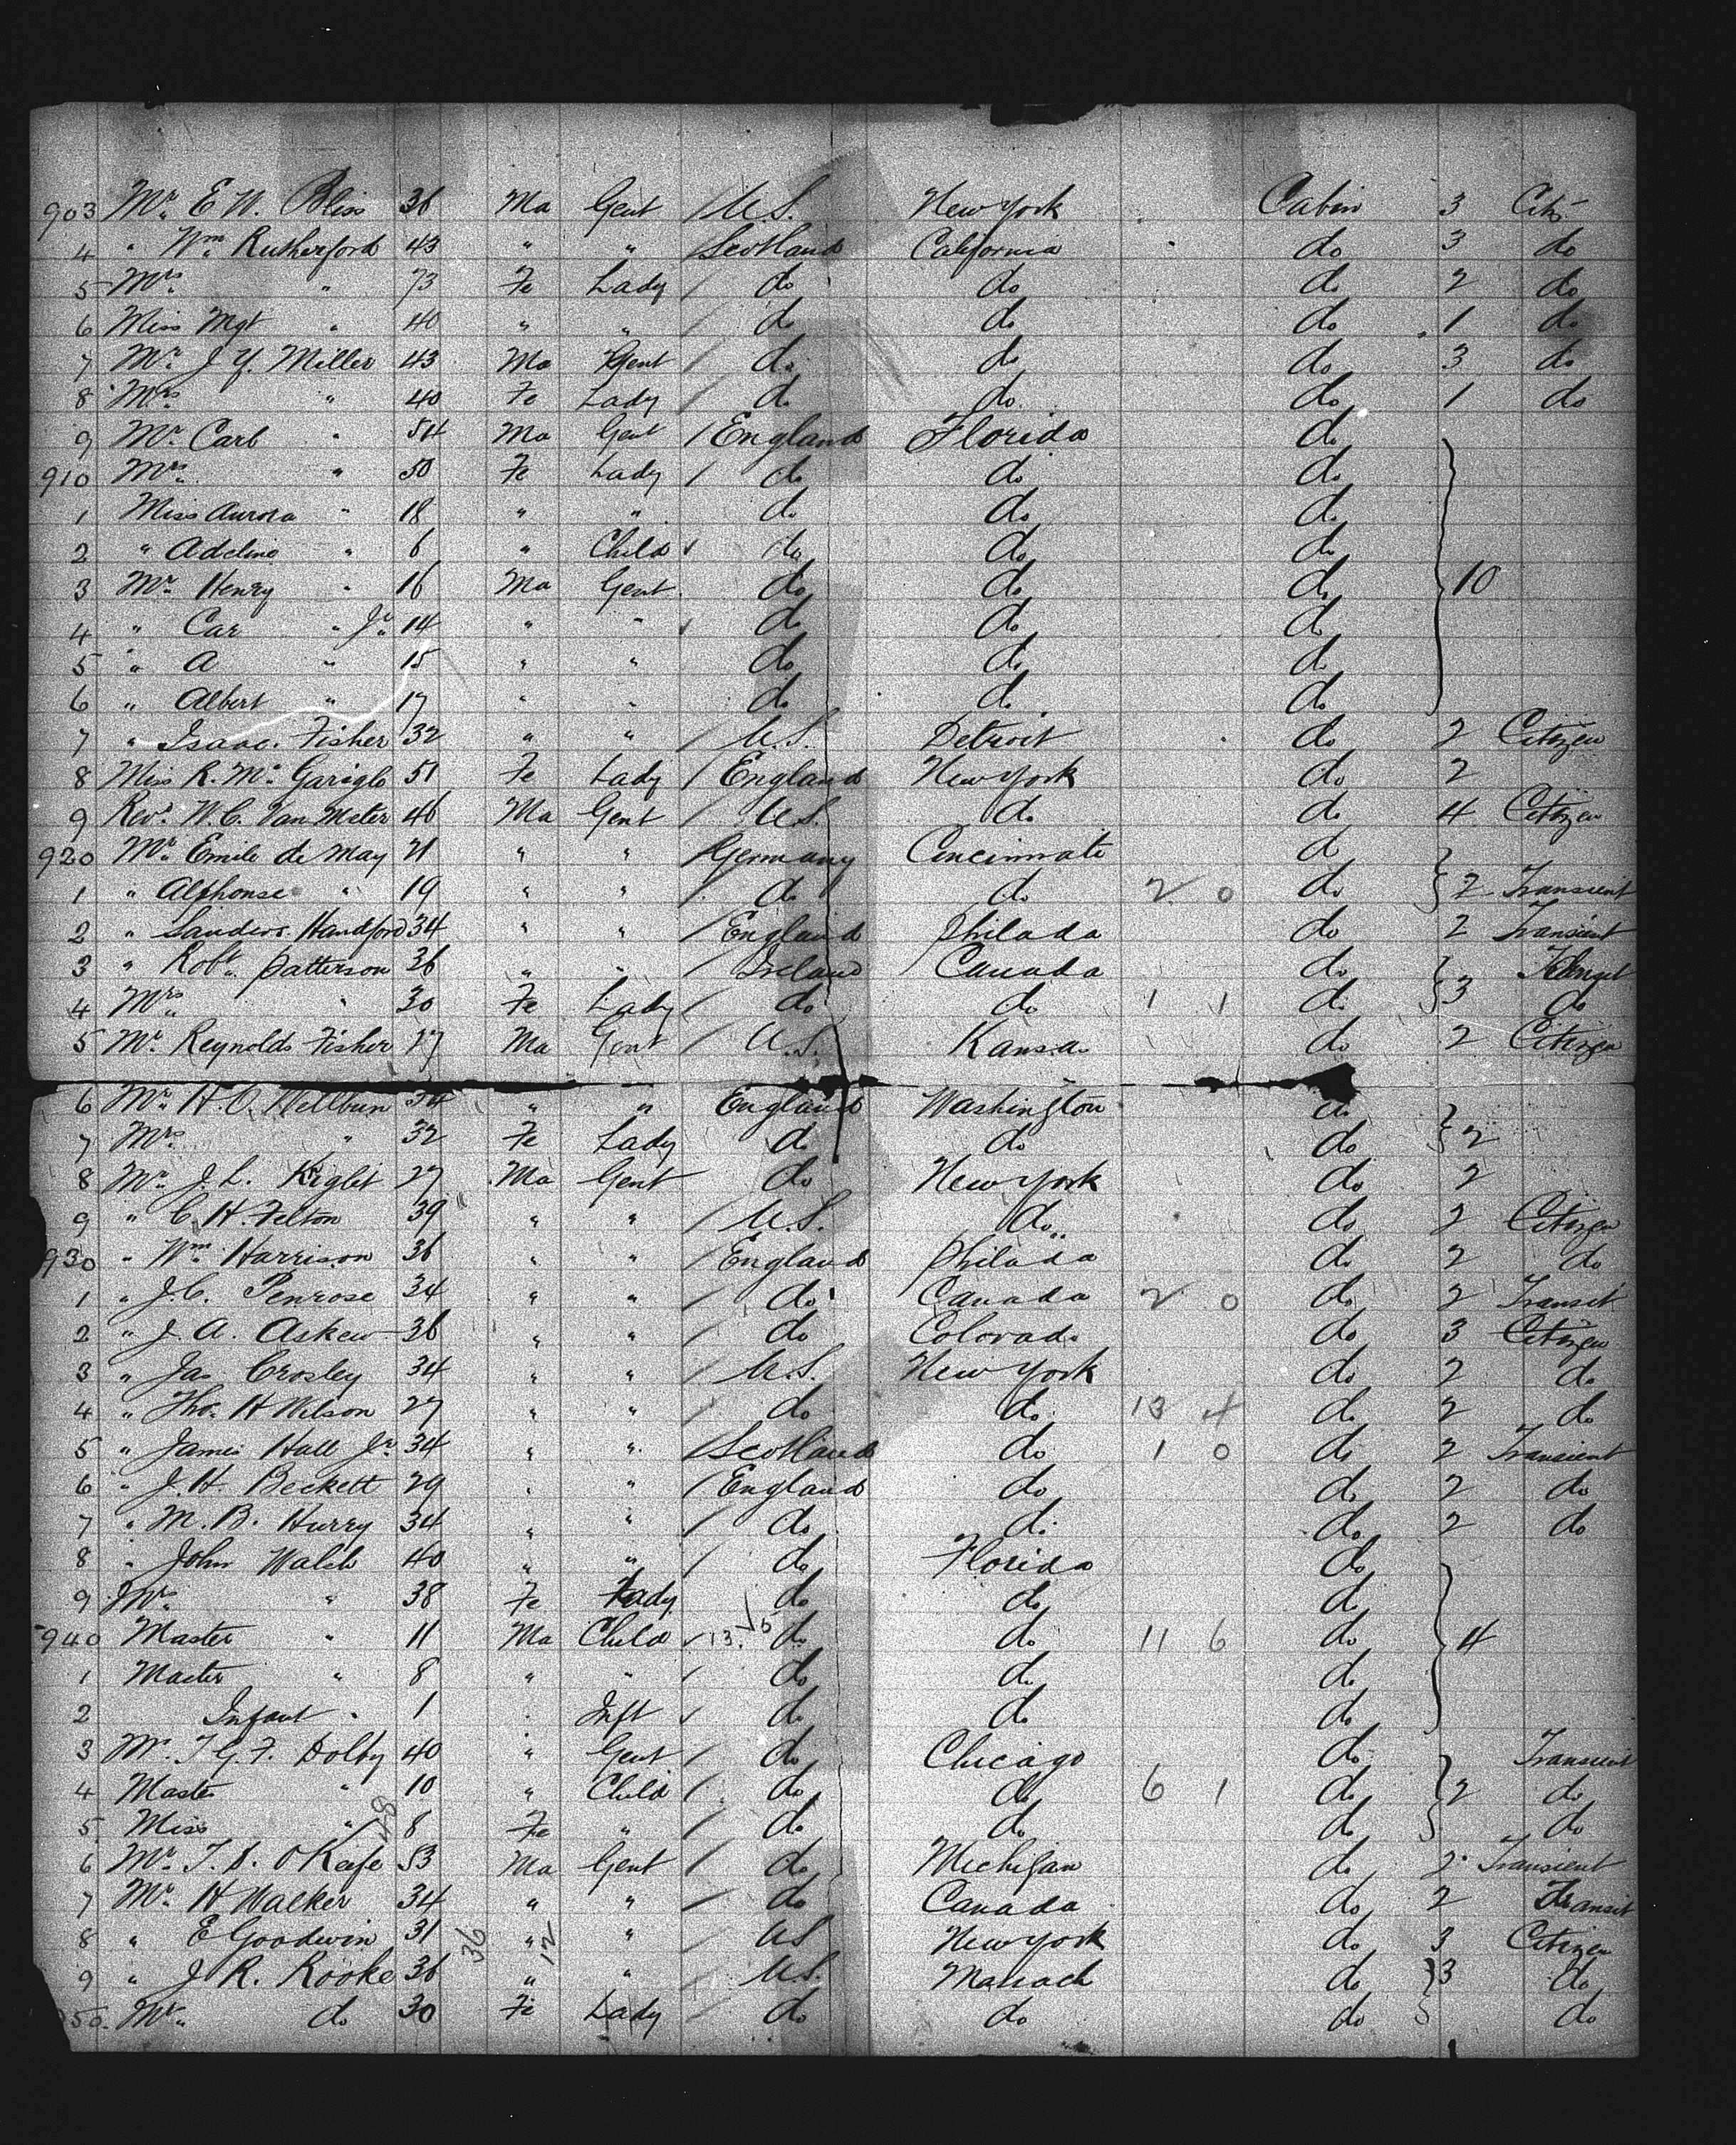 903 Mr. E W. Bliss 36 Ma Gent / U.S. New York Cabin 3 Citz
4 " Wm. Rutherford 43 " " / Scotland California do 3 do
5 Mrs. " 73 Fe Lady / do do do 2 do
6 Miss Mgt " 40 " " / do do do 1 do
7 Mr. J. Y. Miller 43 Ma Gent / do do do 3 do
8 Mrs. " 40 Fe Lady / do do do 1 do
9 Mr. Carb " 54 Ma Gent / England Florida do
910 Mrs. " 50 Fe Lady / do do do
1 Miss Aurora " 18 " " do do do
2 " Adeline " 6 " Child do do do
3 Mr. Henry " 16 Ma Gent do do do 10
4 " Car " Jr. 14 " " do do do
5 " A " 15 " " do do do
6 " Albert " 17 " " do do do
7 " Isaac Fisher 32 " " / U.S. Detroit do 2 Citizen
8 Miss R. Mc. Gariglo 51 Fe Lady / England New York do 2
9 Revd. W. C. Van Meter 46 Ma Gent / U.S. do do 4 Citizen
920 Mr. Emile de May 21 " " / Germany Cincinnati do
1 " Alphonse " 19 " " / do do 2 0 do 2 Transient
2 " Sanders Handford 34 " " / England Philada do 2 Transient
3 " Robt. Patterson 36 " " / Ireland Canada do
4 Mrs. " 30 Fe Lady / do do 1 1 do 3 do
5 Mr. Reynolds Fisher 27 Ma Gent / U.S. Kansas do 2 Citizen
6 Mr. H. O. Wellbun 34 " " England Washington do
7 Mrs. " 32 Fe Lady do do do 2
8 Mr. J. L. Kight 27 Ma Gent do New York do 2
9 " C. H. Felton 39 " " / U.S. do do 2 Citizen
930 " Wm. Harrison 36 " " / England Philada do 2 do
1 " J. C. Penrose 34 " " / do Canada 2 0 do 2 Transit
2 " J. A. Askew 36 " " / do Colorado do 3 Citizen
3 " Jas Crosley 34 " " / U.S. New York do 2 do
4 " Tho. H Wilson 27 " " / do do 13 4 do 2 do
5 " James Hall Jr. 34 " " / Scotland do 1 0 do 2 Transient
6 " J. H. Beckett 29 " " / England do do 2 do
7 " M. B. Hurry 34 " " / do do do 2 do
8 " John Walsh 40 " " / do Florida do
9 Mrs. " 38 Fe Lady do do do
940 Master " 11 Ma Child 13 do do 11 6 do 4
1 Master " 8 " " / do do do
2 Infant " 1 " Inft do do do
3 Mr. T. G. F. Dolby 40 " Gent / do Chicago do Transient
4 Master " 10 " Child / do do 6 1 do 2 do
5 Miss " 8 Fe " / do do do do
6 Mr. T. S. O'Keefe 53 Ma Gent / do Michigan do 2 Transient
7 Mr. H Walker 34 " " / do Canada do 2 Transit
8 " E Goodwin 31 36 " 12 " / US New York do 3 Citizen
9 " J R. Rooke 36 " " / U.S. Massach do 3 do
950. Mrs. do 30 Fe Lady / do do do do